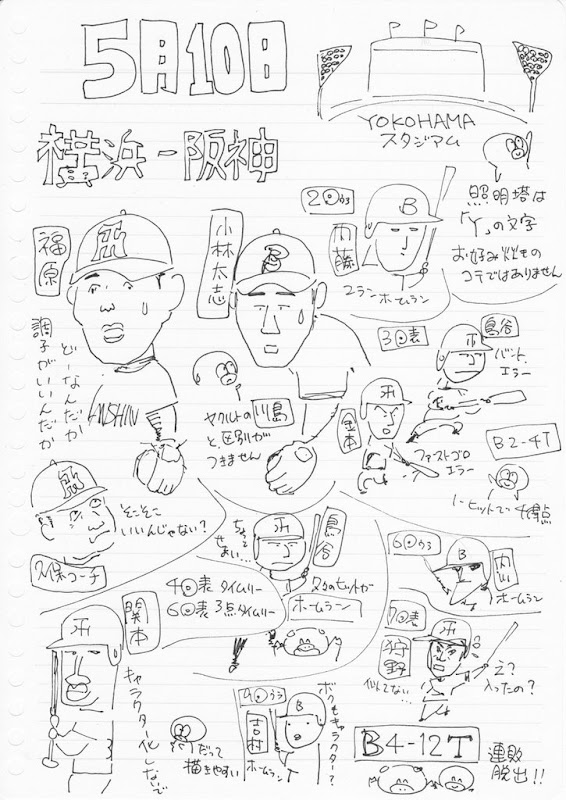 5月10日
YOKOHAMA
スタジアム
横浜-阪神
照明塔は
「Y」の文字
お好み焼きの
コテではありません
福原
小林太志
2回ウラ
内藤
B
2ランホームラン
どーなんだか
調子がいいんだか
HANSHIN
ヤクルトの川島
と区別が
つきません
3回表
鳥谷
バント
エラー
金本
ファストゴロ
エラー
B2-4T
1ヒットで4得点
久保コーチ
そこそこ
いいんじゃない?
鳥谷
ちょっと
せまい…
ホームラン
4回表 タイムリー
6回表 3点タイムリー
関本
キャラクター化しないで
だって
描きやすい
6回ウラ
B
内川
ホームラン
7回表
狩野
似てない…
え?
入ったの?
9回ウラ
吉村
ホームラン
B
ボクもキャラクター?
B4-12T
連敗
脱出!!